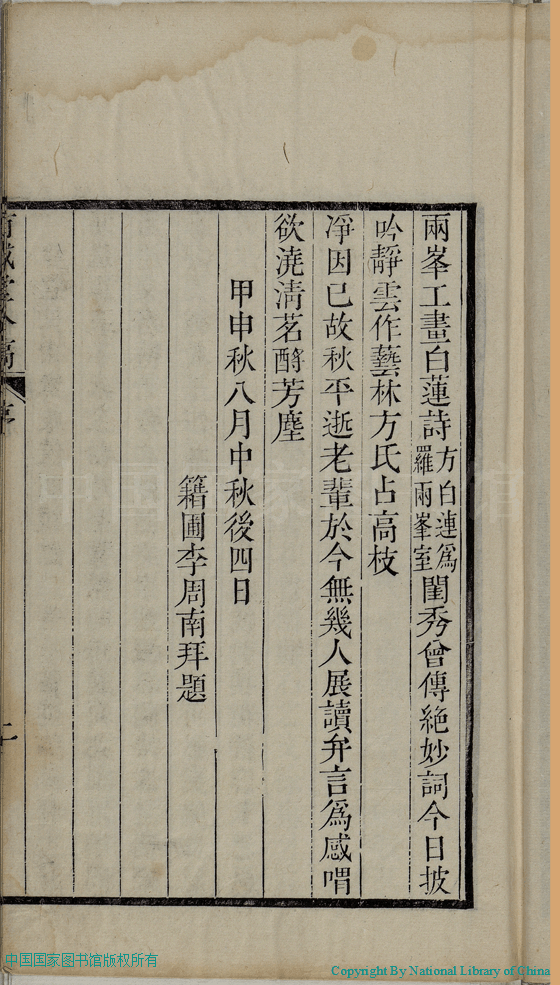 兩峯工畫白蓮詩方白蓮為羅兩峯室閨秀曾傳絶妙詞今日披
吟靜雲作藝林方氏占高枝
淨因已故秋平逝老輩於今無幾人展讀弁言為感喟
欲澆清茗酹芳塵
甲申秋八月中秋後四日
籍圃李周南拜題
序
二
中国国家图书馆版权所有
Copyright By National Library of China